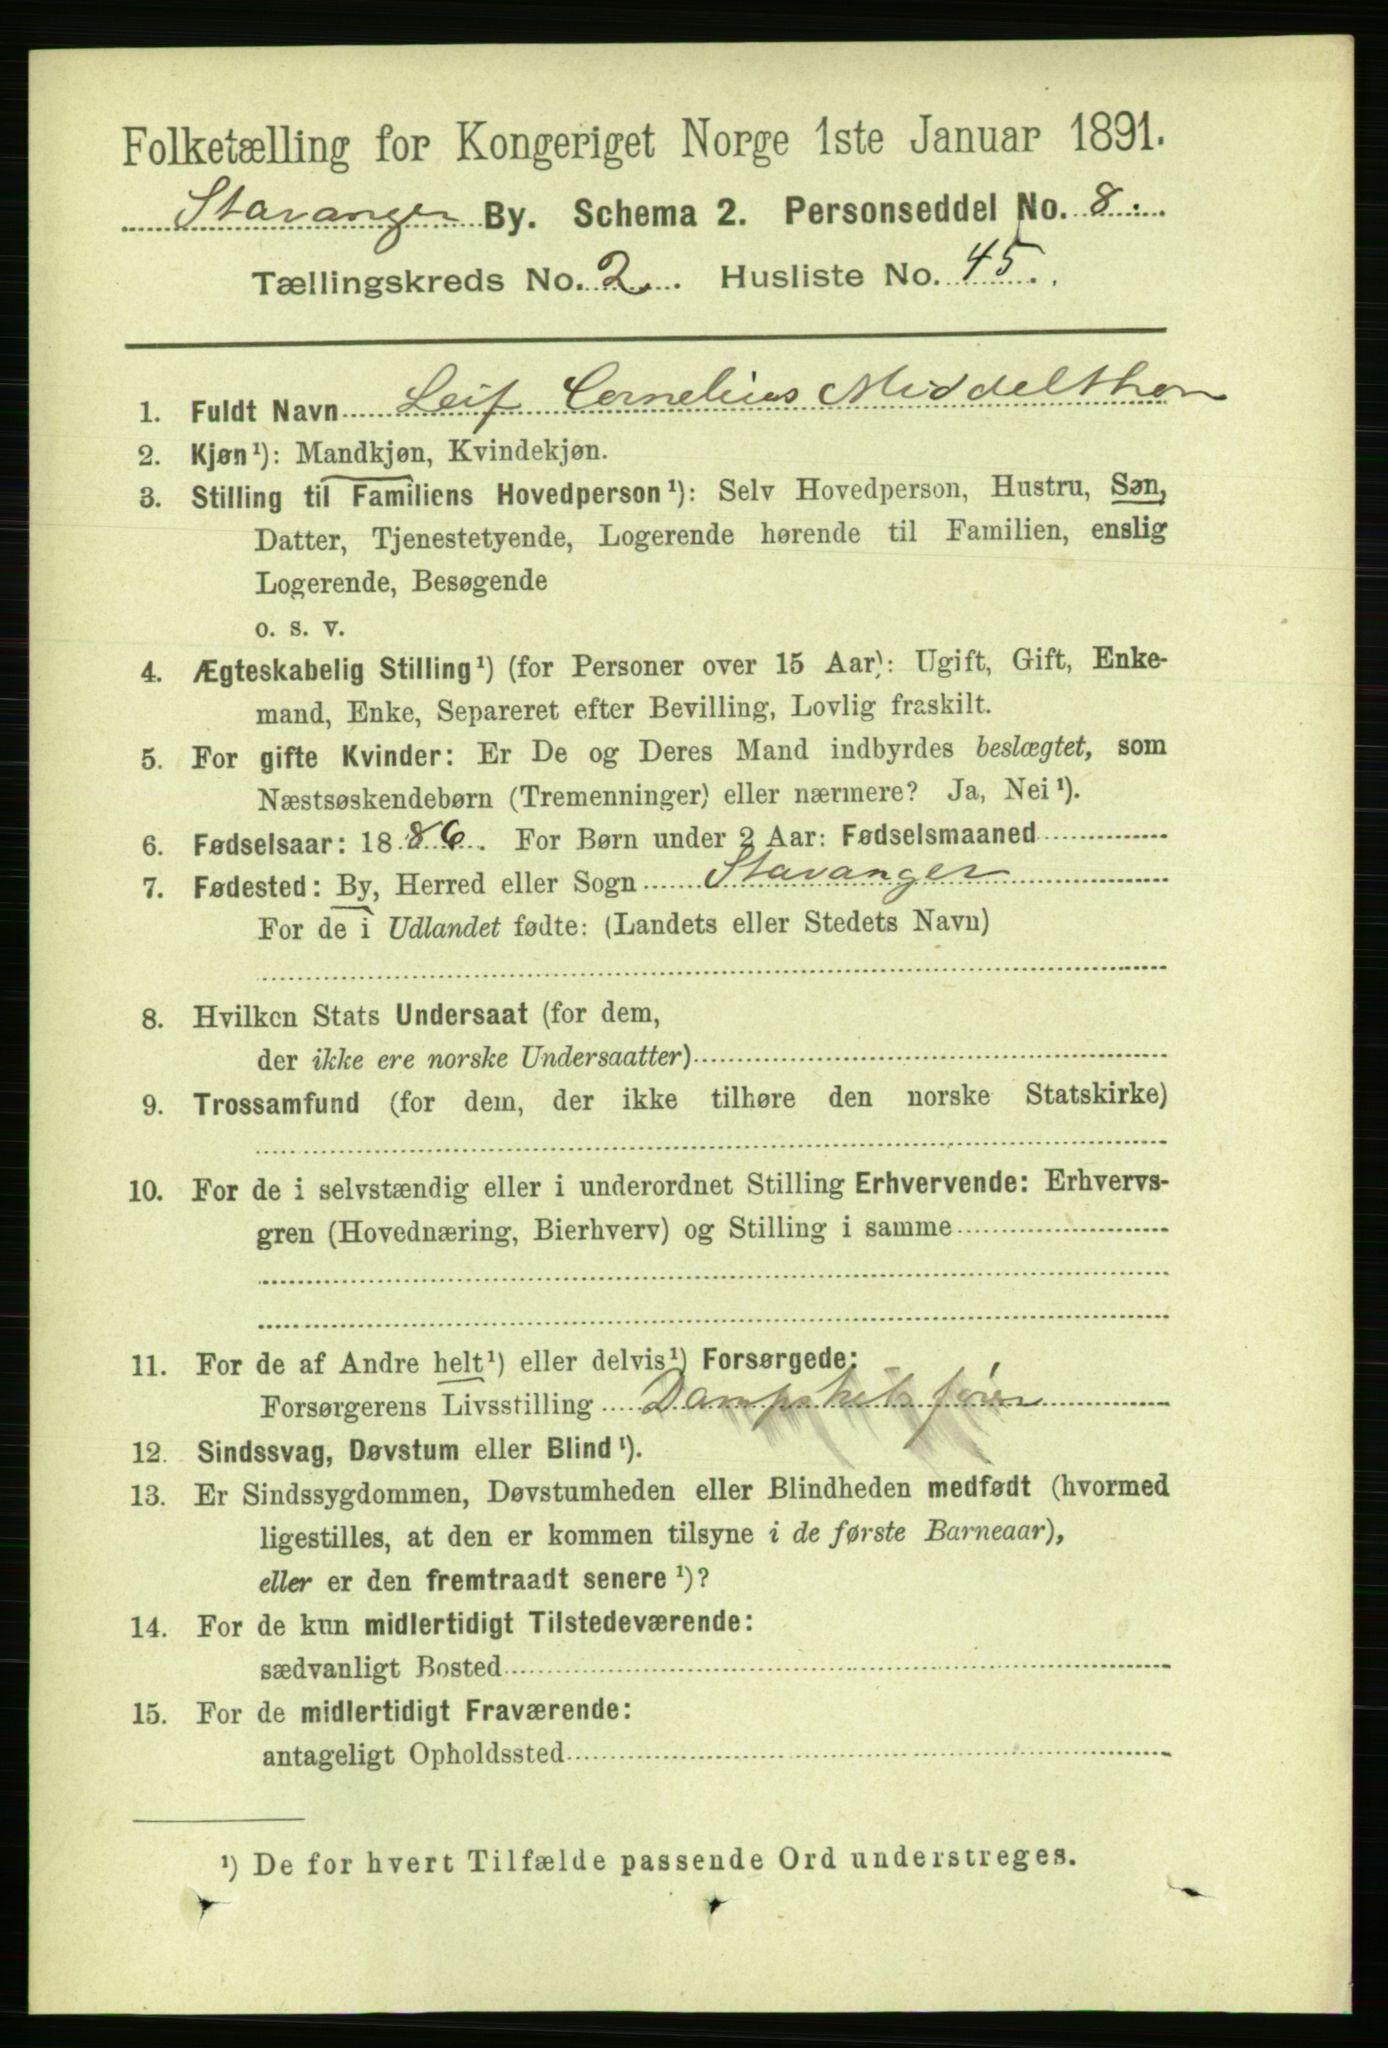 Folketælling for Kongeriget Norge 1ste Januar 1891.
Stavanger By. Schema 2. Personseddel No. 8.
Tællingskreds No. 2. Husliste No. 45.
1. Fuldt Navn Leif Cornelius Middelthon
2. Kjøn¹): Mandkjøn, Kvindekjøn.
3. Stilling til Familiens Hovedperson¹): Selv Hovedperson, Hustru, Søn,
Datter, Tjenestetyende, Logerende hørende til Familien, enslig
Logerende, Besøgende
o. s. v.
4. Ægteskabelig Stilling¹) (for Personer over 15 Aar): Ugift, Gift, Enke-
mand, Enke, Separeret efter Bevilling, Lovlig fraskilt.
5. For gifte Kvinder: Er De og Deres Mand indbyrdes beslægtet, som
Næstsøskendebørn (Tremenninger) eller nærmere? Ja, Nei¹).
6. Fødselsaar: 1886. For Børn under 2 Aar: Fødselsmaaned
7. Fødested: By, Herred eller Sogn Stavanger
For de i Udlandet fødte: (Landets eller Stedets Navn)
8. Hvilken Stats Undersaat (for dem,
der ikke ere norske Undersaatter)
9. Trossamfund (for dem, der ikke tilhøre den norske Statskirke)
10. For de i selvstændig eller i underordnet Stilling Erhvervende: Erhvervs-
gren (Hovednæring, Bierhverv) og Stilling i samme
11. For de af Andre helt¹) eller delvis¹) Forsørgede:
Forsørgerens Livsstilling Dampskibsfører
12. Sindssvag, Døvstum eller Blind¹).
13. Er Sindssygdommen, Døvstumheden eller Blindheden medfødt (hvormed
ligestilles, at den er kommen tilsyne i de første Barneaar),
eller er den fremtraadt senere¹)?
14. For de kun midlertidigt Tilstedeværende:
sædvanligt Bosted
15. For de midlertidigt Fraværende:
antageligt Opholdssted
¹) De for hvert Tilfælde passende Ord understreges.